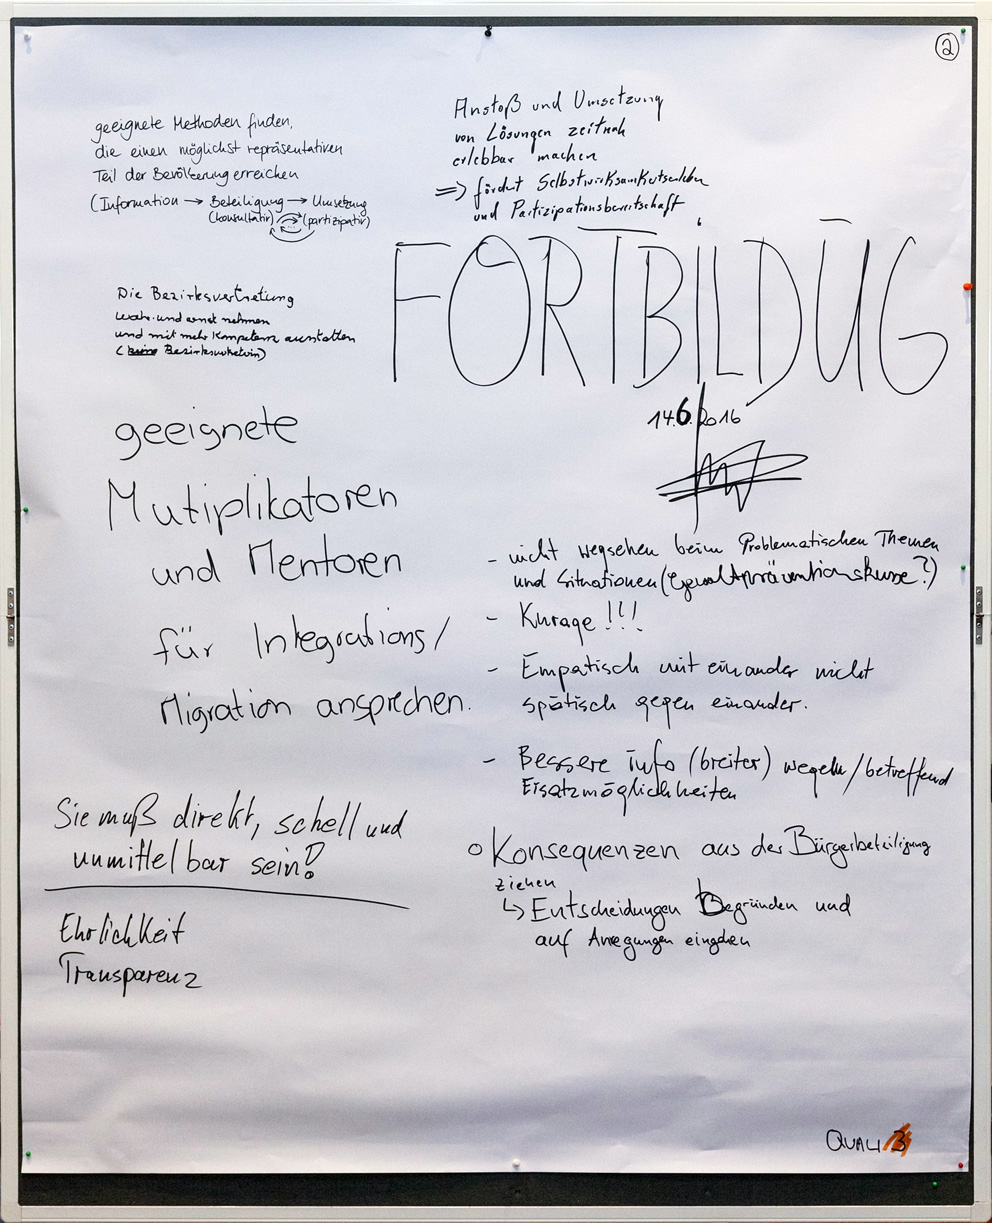 ②
geeignete Methoden finden,
die einen möglichst repräsentativen
Teil der Bevölkerung erreichen
(Information → Beteiligung → Umsetzung
(konsultativ) (partizipativ)
Anstoß und Umsetzung
von Lösungen zeitnah
erlebbar machen
=> fördert Selbstwirksamkeitserleben
und Partizipationsbereitschaft
FORTBILDUG
14.6.2016
Die Bezirksvertretung
wahr- und ernst nehmen
und mit mehr Kompetenz ausstatten
geeignete
Mutiplikatoren
und Mentoren
für Integrations/
Migration ansprechen.
- nicht wegsehen beim Problematischen Themen
und Situationen (Gewaltpräventionskurse?)
- Kurage!!!
- Empatisch mit einander nicht
spätisch gegen einander.
- Bessere Info (breiter) wegeln/betreffend
Ersatzmöglichkeiten
Sie muß direkt, schell und
unmittelbar sein!
Ehrlichkeit
Transparenz
o Konsequenzen aus der Bürgerbeteiligung
ziehen
↳ Entscheidungen Begründen und
auf Anregungen eingehen
QUALI 3